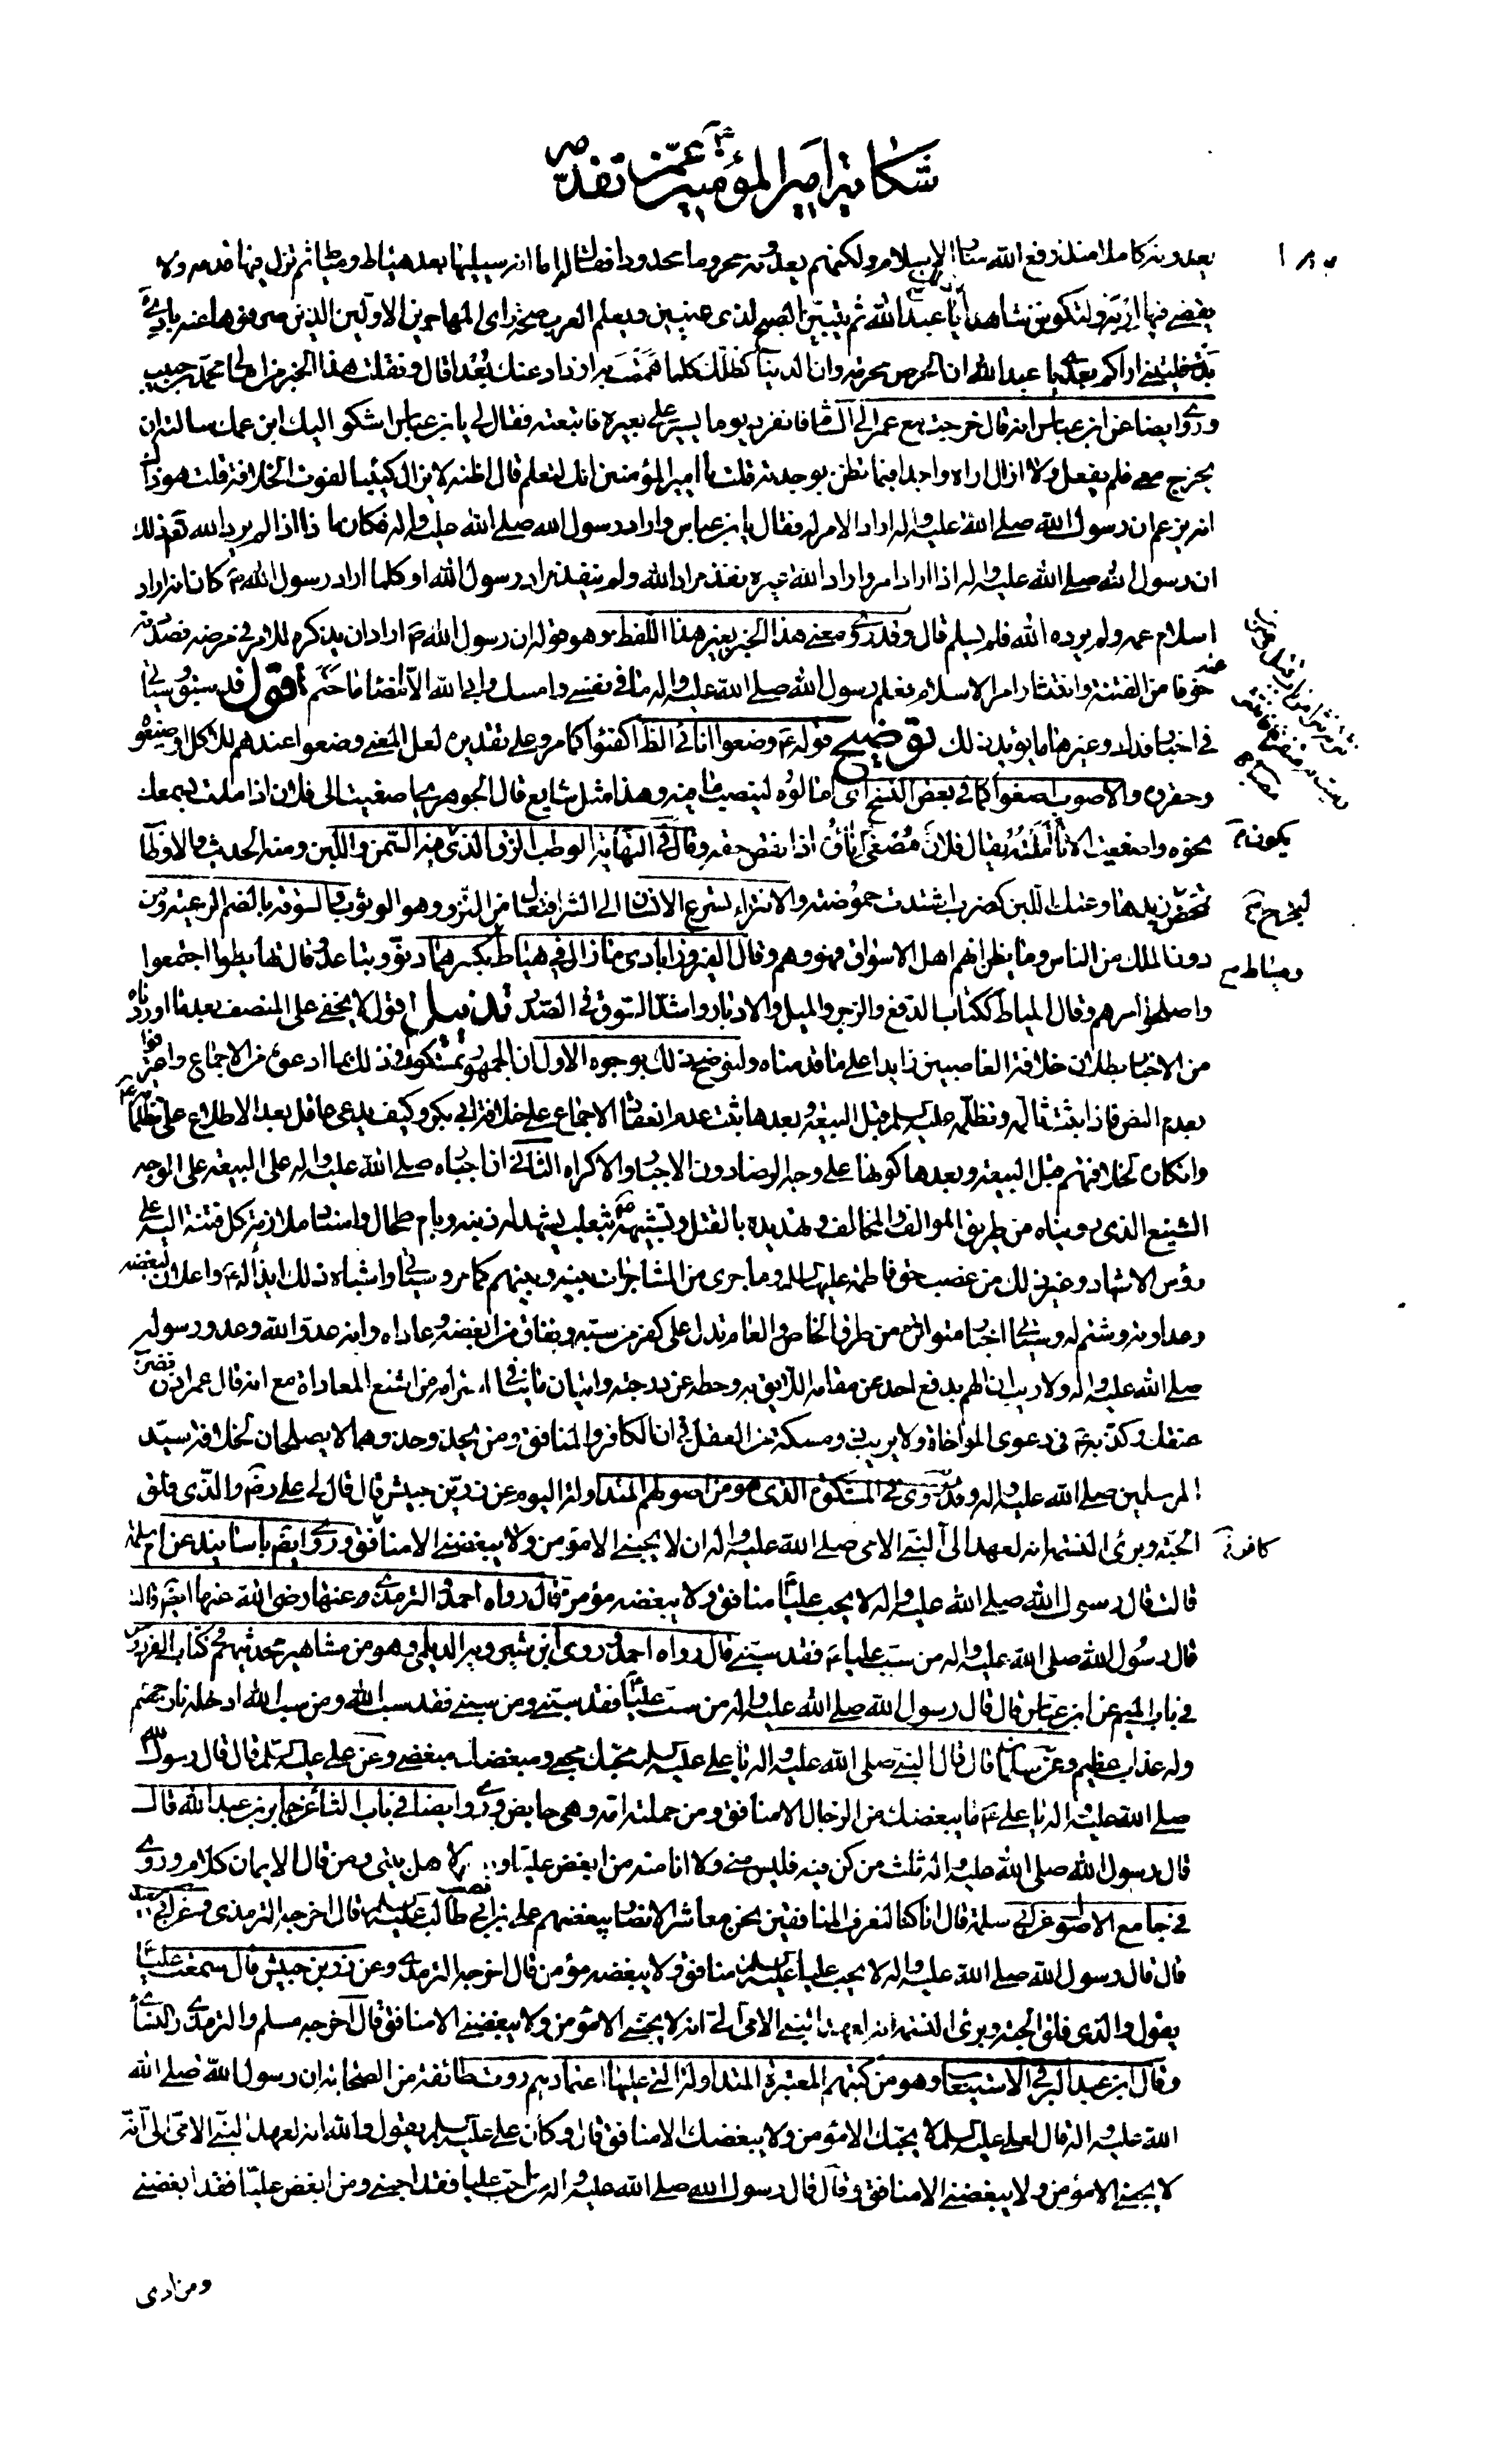 شكاية أمير المؤمنين ع عمن تقدمه ص
١٨٠
يعدونه كاملا منذ رفع الله منار الإسلام ولكنهم يعدونه محروما مجدودا فقلت أما إنه سيليها بعد هياط ومياط ثم تزل فيها قدمه ولا
يقضي فيها إربه ولتكونن شاهدا يا عبد الله ثم يتبين الصبح لذي عينين ويعلم العرب صحة رأي المهاجرين الأولين الذين صرفوها عنه بادئ
بدء فليتني أراكم بعدي يا عبد الله إن الحرص محرمة وإن الدنيا كظلك كلما هممت به ازداد عنك بعدا قال ونقلت هذا الخبر من أمالي محمد بن حبيب
وروى أيضا عن ابن عباس أنه قال خرجت مع عمر إلى الشام فانفرد يوما يسير على بعيره فاتبعته فقال لي يا بن عباس أشكو إليك ابن عمك سألته أن
يخرج معي فلم يفعل ولا أزال أراه واجدا فيما تظن موجدته قلت يا أمير المؤمنين إنك لتعلم قال أظنه لا يزال كئيبا لفوت الخلافة قلت هو ذاك
إنه يزعم أن رسول الله صلى الله عليه وآله أراد الأمر له فقال يا بن عباس وأراد رسول الله صلى الله عليه وآله فكان ماذا إذا لم يرد الله تع ذلك
إن رسول الله صلى الله عليه وآله إذا أراد أمرا وأراد الله غيره نفذ مراد الله ولم ينفذ مراد رسول الله أو كلما أراد رسول الله ص كان إنه أراد
إسلام عمه ولم يرده الله فلم يسلم قال وقد روي معنى هذا الخبر بغير هذا اللفظ وهو قوله إن رسول الله ص أراد أن يذكره للأمر في مرضه فصددته
عنه خوفا من الفتنة وانتشار أمر الإسلام فعلم رسول الله صلى الله عليه وآله ما في نفسي وأمسك وأبى الله إلا إمضاء ما حتم أقول قد سبق وسيأتي
في أخبار فدك وغيرها ما يؤيد ذلك توضيح قوله ع وضعوا إنائي الظ أكفئوا كما مر وعلى تقديره لعل المعنى وضعوا عندهم للأكل وضيعوه
وحقروه والأصوب أصغوا كما في بعض النسخ أي أمالوه لينصب ما فيه وهذا مثل شايع قال الجوهري أصغيت إلى فلان إذا ملت بسمعك
نحوه وأصغيت الإناء أملته يقال فلان مصغى إناؤه إذا نقص حقه وقال في النهاية الوطب الزق الذي يكون فيه السمن واللبن ومنه الحديث والأوطاب
تمخض ليخرج زبدها ومحك اللبن كضرب اشتدت حموضته والانتزاء تسرع الإنسان إلى الشر افتعال من النزو وهو الوثوب والسوقة بالضم الرعية ومن
دون الملك من الناس وما يظن أنهم أهل الأسواق فهو وهم وقال الفيروزآبادي ما زال في هياط ومياط بكسرهما دنو وتباعد وقال تهايطوا اجتمعوا
وأصلحوا أمرهم وقال المياط ككتاب الدفع والزجر والميل والإدبار وأشد السوق في الصدر تذييل أقول لا يخفى على المنصف بعد ما أوردناه
من الأخبار بطلان خلافة الغاصبين زايدا على ما قدمناه ولنوضح ذلك بوجوه الأول أن الجمهور تمسكوا في ذلك بما ادعوه من الإجماع واعترفوا
بعدم النص فإذا ثبت تألمه وتظلمه عليه السلم قبل البيعة وبعدها ثبت عدم انعقاد الإجماع على خلافة أبي بكر وكيف يدعي عاقل بعد الاطلاع على تظلماته ع
وإنكاره لخلافتهم قبل البيعة وبعدها كونها على وجه الرضا دون الإجبار والإكراه الثاني أن إجباره صلى الله عليه وآله على البيعة على الوجه
الشنيع الذي رويناه من طريق المؤالف والمخالف وتهديده بالقتل وتشبيهه ص بثعلب شهيده ذنبه وبأم طحال وإسناد ملازمة كل فتنة إليه على
رؤس الأشهاد وغير ذلك من غصب حق فاطمة عليها السلم وما جرى من المشاجرات بينه وبينهم كما مر وسيأتي وأشباه ذلك إيذاء له ع وإعلان لبغضه
وعداوته وشتم له وسيأتي أخبار متواترة من طرق الخاص والعام تدل على كفر من سبه ونفاق من أبغضه وعاداه وأنه عدو الله وعدو رسوله
صلى الله عليه وآله ولا ريب أن الهم بدفع أحد عن مقامه اللائق به وحطه عن درجته وإتيان ما ينافي احترامه من أشنع المعاداة مع أنه قال عمر إذن نضرب
عنقك وكذب به ع في دعوى المواخاة ولا يريب ذو مسكة من العقل في أن الكافر والمنافق ومن يحذو حذوهما لا يصلحان لخلافة سيد
المرسلين صلى الله عليه وآله وقد روى في المشكوة الذي هو من أصولهم المتداولة اليوم عن زر بن حبيش قال قال لي علي رض والذي فلق
الحبة وبرئ النسمة إنه لعهد إلي النبي الأمي صلى الله عليه وآله أن لا يحبني إلا مؤمن ولا يبغضني إلا منافق وروى أيضا بأسانيد عن أم سلمة
قالت قال رسول الله صلى الله عليه وآله لا يحب عليا منافق ولا يبغضه مؤمن قال رواه أحمد والترمذي وعنها رضي الله عنها أيضا قالت
قال رسول الله صلى الله عليه وآله من سب عليا ع فقد سبني قال رواه أحمد وروى ابن شيرويه الديلمي وهو من مشاهير محدثيهم في كتاب الفردوس
في باب الميم عن ابن عباس قال قال رسول الله صلى الله عليه وآله من سب عليا فقد سبني ومن سبني فقد سب الله ومن سب الله أدخله نار جهنم
وله عذاب عظيم وعن سلمان قال قال النبي صلى الله عليه وآله يا علي عليه السلم محبك محبي ومبغضك مبغضي وعن علي عليه السلم قال قال رسول الله
صلى الله عليه وآله يا علي ع ما يبغضك من الرجال إلا منافق ومن حملته أمه وهي حايض وروى أيضا في باب الثاء عن جابر بن عبد الله قال
قال رسول الله صلى الله عليه وآله ثلث من كن فيه فليس مني ولا أنا منه من أبغض عليا و لأهل بيتي ومن قال الإيمان كلام وروى
في جامع الأصول عن أبي سلمة قال إنا كنا لنعرف المنافقين نحن معاشر الأنصار ببغضهم علي بن أبي طالب عليه السلم قال أخرجه الترمذي وعن أبي سعيد
قال قال رسول الله صلى الله عليه وآله لا يحب عليا عليه السلم منافق ولا يبغضه مؤمن قال أخرجه الترمذي وعن زر بن حبيش قال سمعت عليا
يقول والذي فلق الحبة وبرئ النسمة إنه لعهد النبي الأمي إلي أنه لا يحبني إلا مؤمن ولا يبغضني إلا منافق قال أخرجه مسلم والترمذي والنسائي
وقال ابن عبد البر في الاستيعاب وهو من كتبهم المعتبرة المتداولة التي عليها اعتمادهم روت طائفة من الصحابة أن رسول الله صلى الله
الله عليه وآله قال لعلي عليه السلم لا يحبك إلا مؤمن ولا يبغضك إلا منافق قال وكان علي عليه السلم يقول والله إنه لعهد النبي الأمي إلي أنه
لا يحبني إلا مؤمن ولا يبغضني إلا منافق وقال قال رسول الله صلى الله عليه وآله من أحب عليا فقد أحبني ومن أبغض عليا فقد أبغضني
ومن اذى